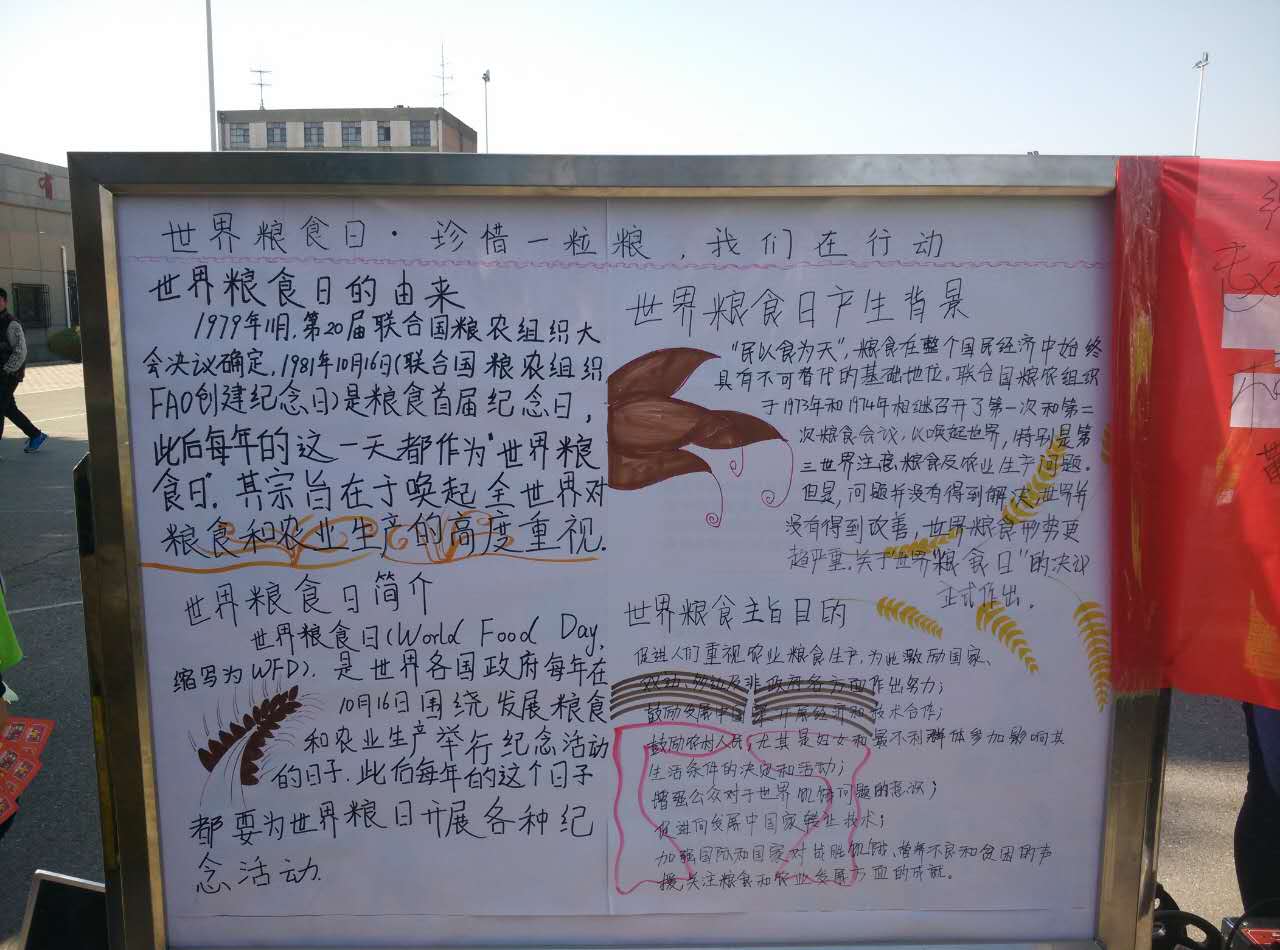 世界粮食日·珍惜一粒粮，我们在行动
世界粮食日的由来
1979年11月，第20届联合国粮农组织大
会决议确定，1981年10月16日(联合国粮农组织
FAO创建纪念日)是粮食首届纪念日，
此后每年的这一天都作为"世界粮
食日"．其宗旨在于唤起全世界对
粮食和农业生产的高度重视．
世界粮食日简介
世界粮食日(World Food Day,
缩写为WFD)．是世界各国政府每年在
10月16日围绕发展粮食
和农业生产举行纪念活动
的日子．此后每年的这个日子
都要为世界粮日开展各种纪
念活动．
世界粮食日产生背景
"民以食为天"，粮食在整个国民经济中始终
具有不可替代的基础地位。联合国粮农组织
于1973年和1974年相继召开了第一次和第二
次粮食会议，以唤起世界，特别是第
三世界注意粮食及农业生产问题．
但是，问题并没有得到解决，世界并
没有得到改善，世界粮食形势更
趋严重．关于世界"粮食日"的决议
正式作出．
世界粮食主旨目的
促进人们重视农业粮食生产，为此激励国家、
非政府各方面作出努力；
鼓励发展中国家开展经济和技术合作；
鼓励农村人民，尤其是妇女和最不利群体参加影响其
生活条件的决定和活动；
增强公众对于世界饥饿问题的意识；
促进向发展中国家转让技术；
加强国际和国家对战胜饥饿、营养不良和贫困的声
援，关注粮食和农业发展方面的成就。